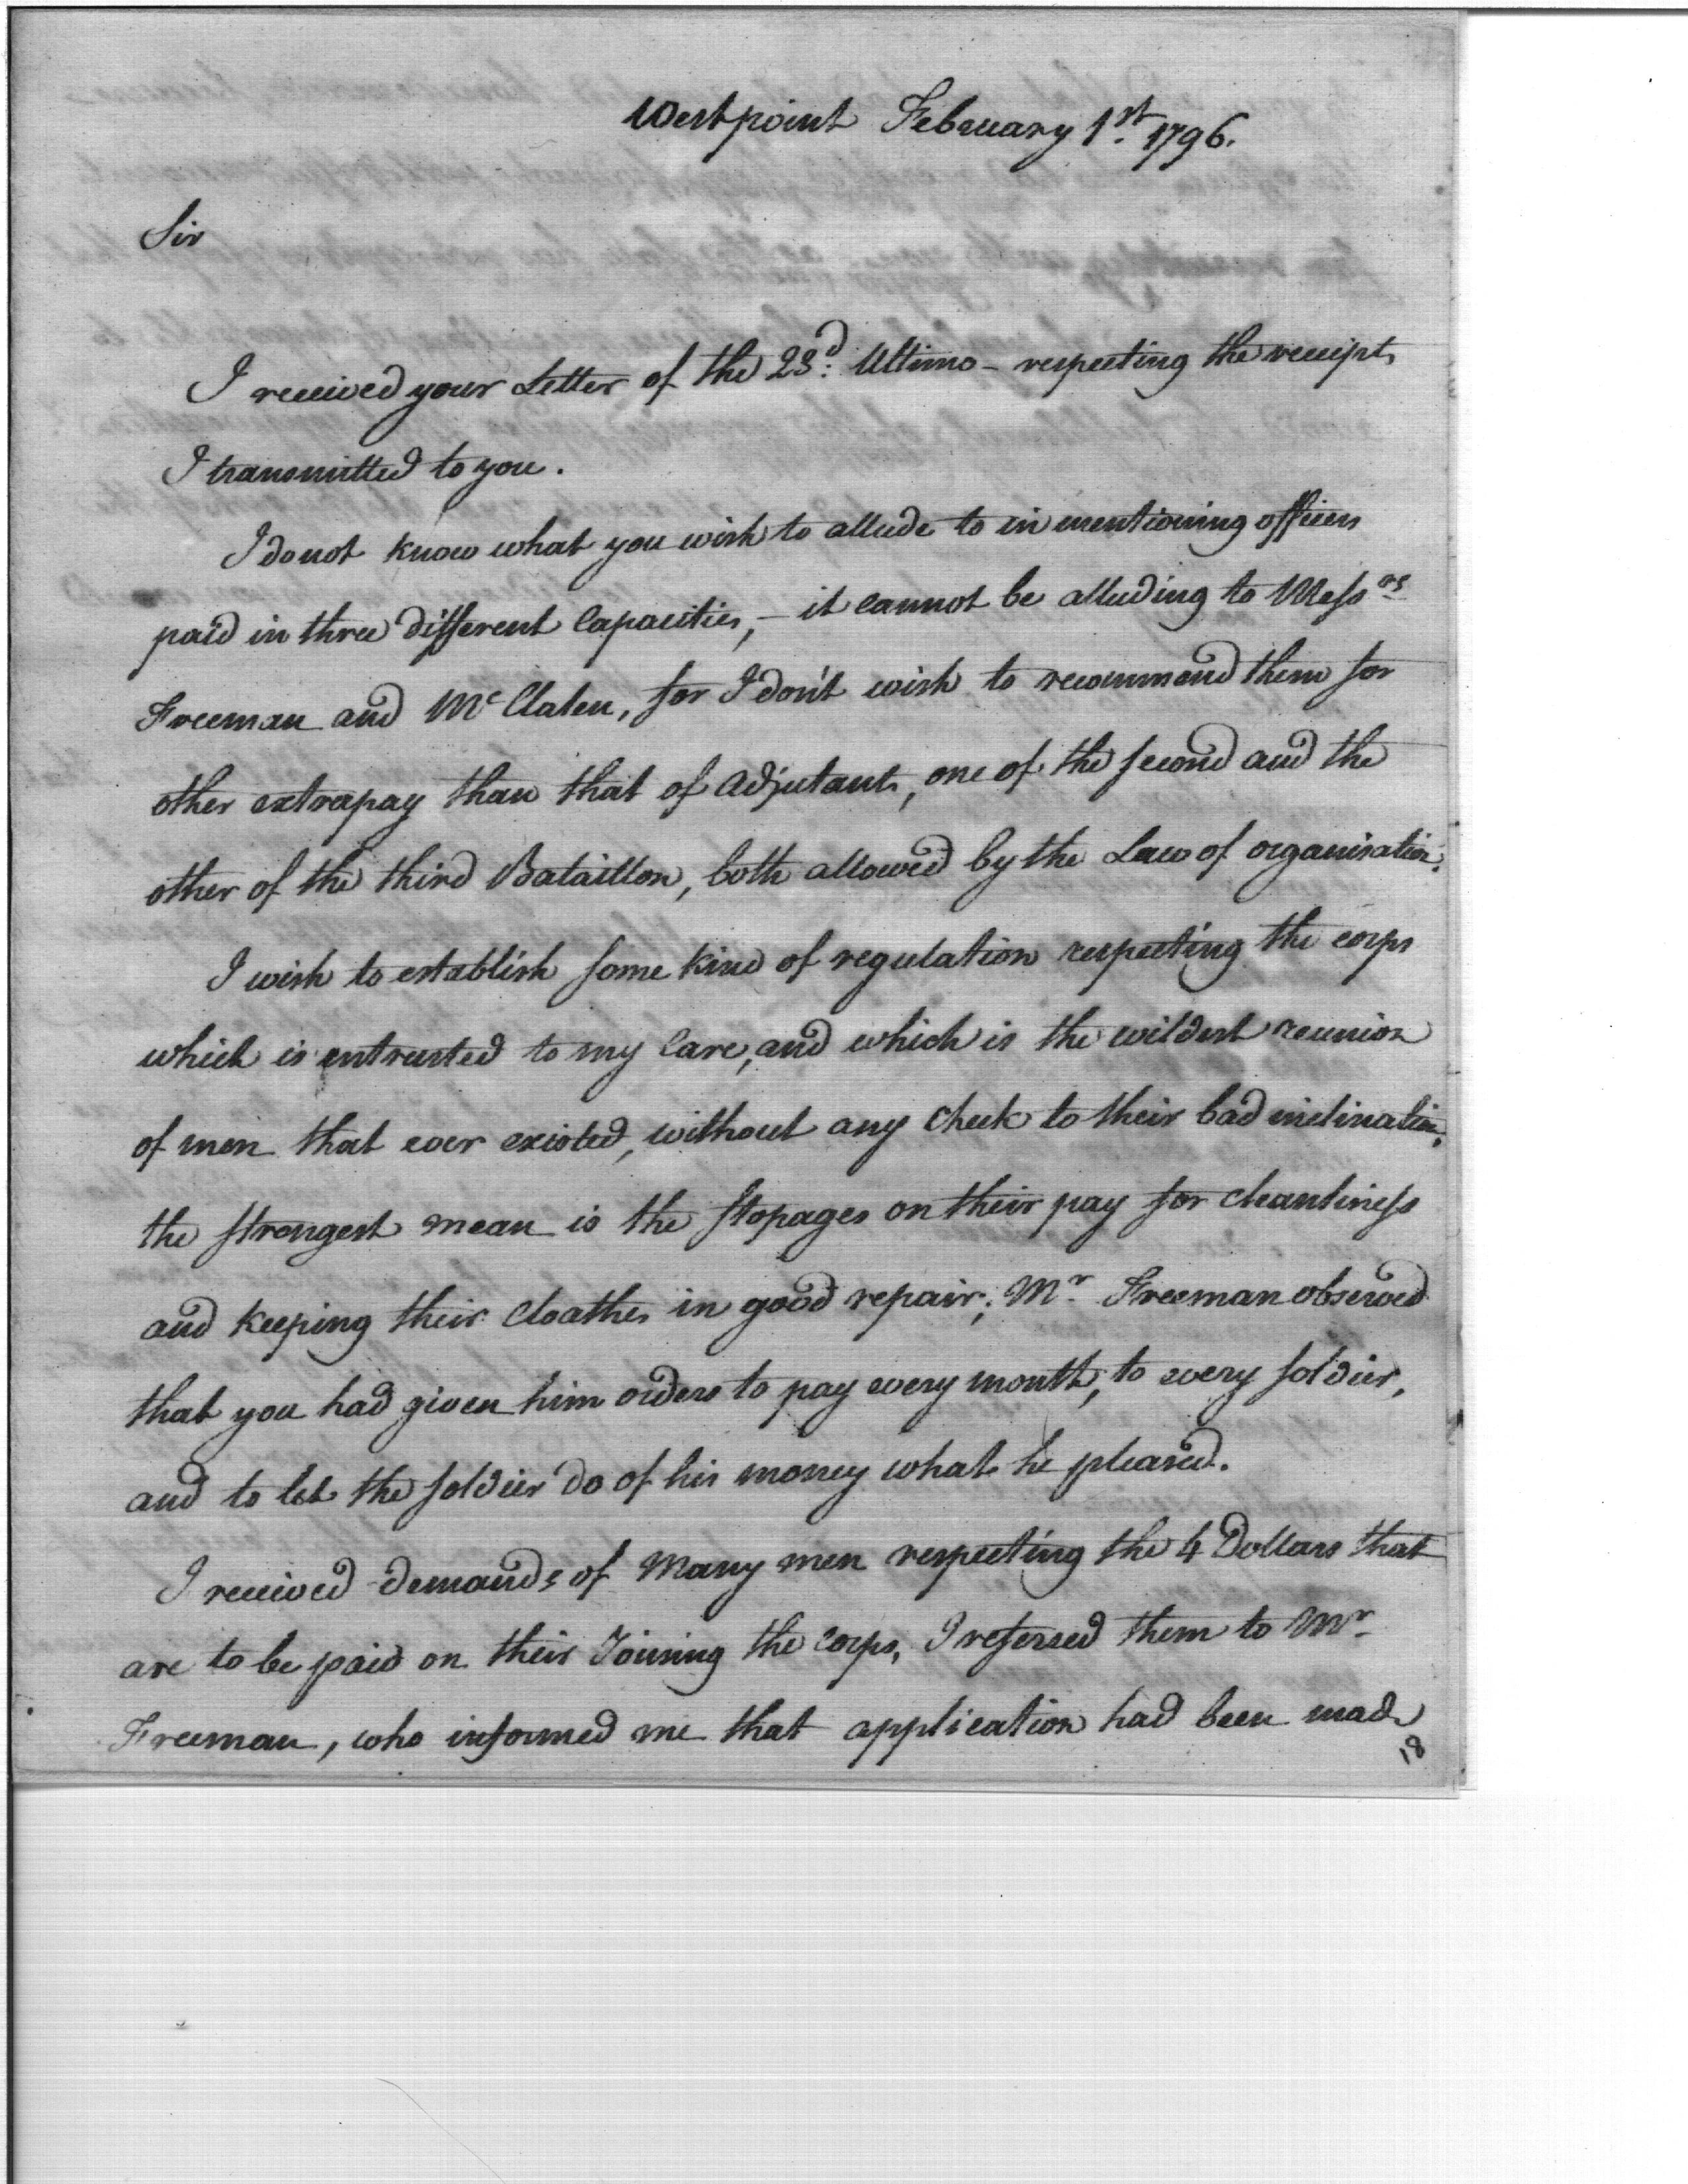 Westpoint February 1st. 1796.
Sir
I received your Letter of the 23d: Ultimo - respecting the receipts
I transmitted to you.
I do not know what you wish to allude to in mentioning officers
paid in three different Capacities, - it cannot be alluding to Messrs
Freeman and McClalen, for I don't wish to recommend them for
other extrapay than that of Adjutants, one of the second and the
other of the third Bataillon, both allowed by the Law of organisation.
I wish to establish some kind of regulation respecting the corps
which is entrusted to my Care, and which is the wildest reunion
of men that ever existed, without any check to their bad inclination,
the strongest mean is the stopages on their pay for cleanliness
and keeping their cloathes in good repair; Mr Freeman observed
that you had given him orders to pay every month, to every soldier,
and to let the soldier do of his money what he pleased.
I received demands of Many men respecting the 4 Dollars that
are to be paid on their Joining the corps, I referred them to Mr
Freeman, who informed me that application had been made
18